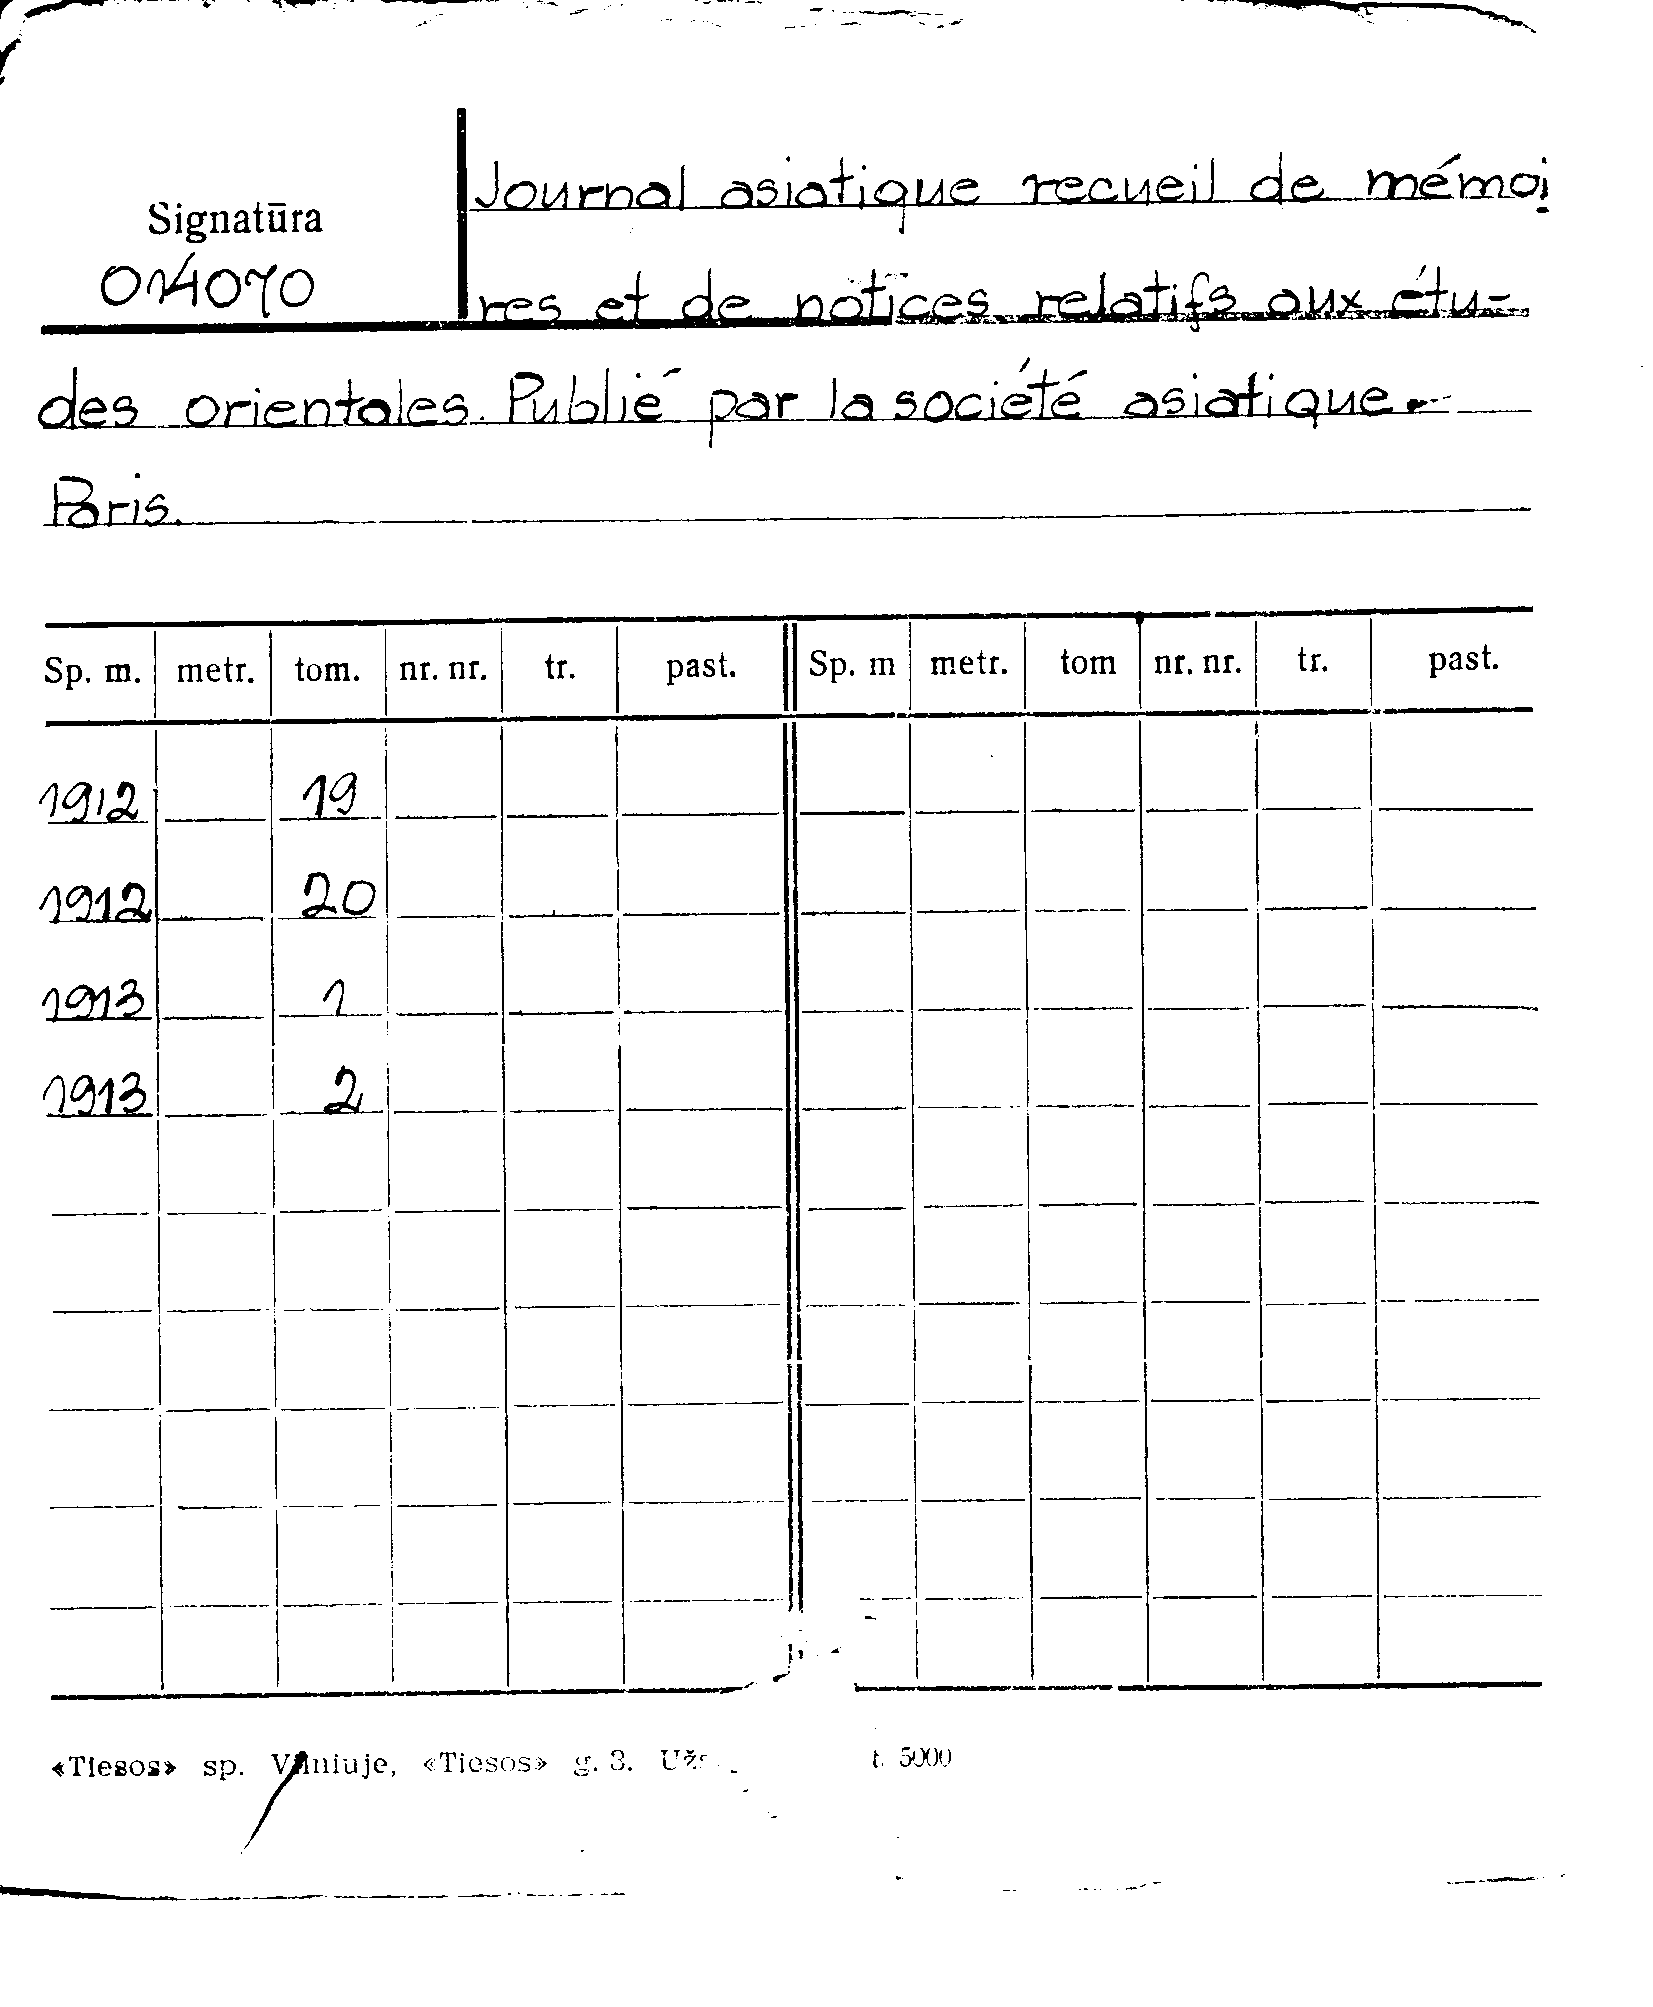 Journal asiatique recueil de mémoi
Signatūra
014070
res et de notices relatifs aux étu-
des orientales. Publié par la société asiatique.-
Paris.
Sp. m. metr. tom. nr. nr. tr. past. Sp. m metr. tom nr. nr. tr. past.
1912 19
1912 20
1913 1
1913 2
«Tiesos» sp. Vilniuje, «Tiesos» g. 3. t. 5000